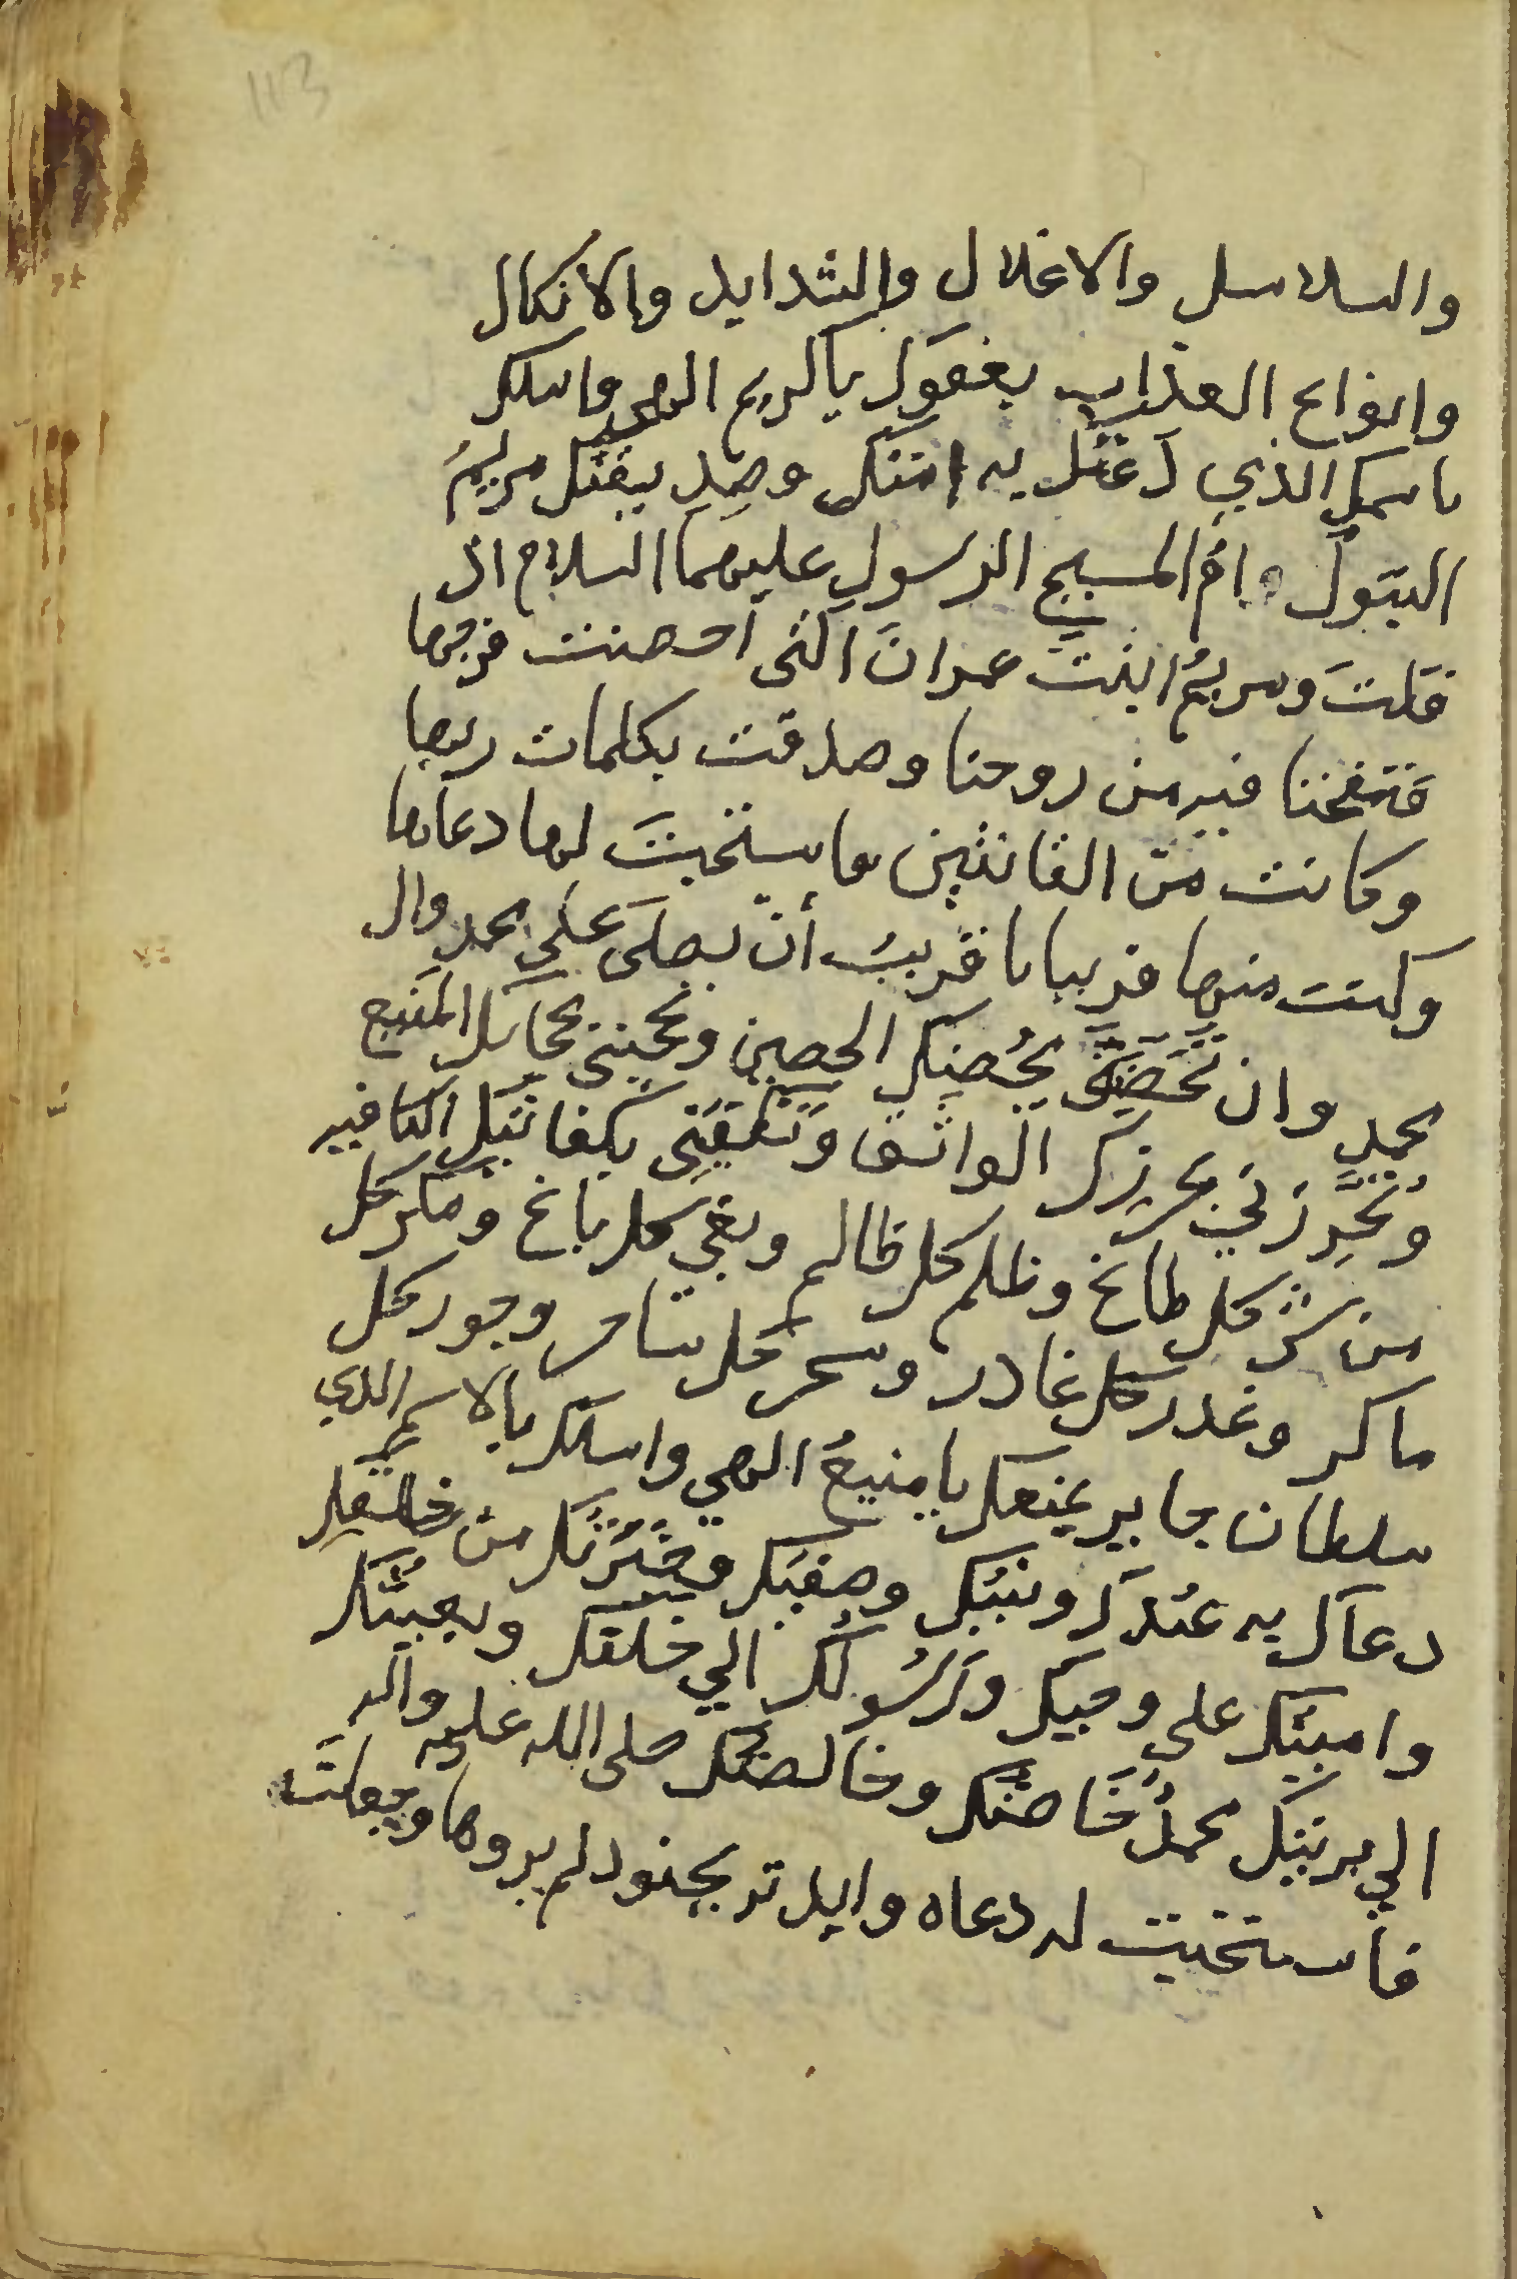 113
والسلاسل والاغلال والشدايد والانكال
وانواع العذاب بعفوك ياكريم الهي واسلك
باسمك الذي دعتك به امتك وصديقتك مريمُ
البتول وام المسيح الرسول عليهما السلام اذ
قلت ومريمُ ابنت عمران التي احصنت فرجها
فنفخنا فيه من روحنا وصدقت بكلمات ربها
وكانت من القانتين فاستجبت لها دعاها
وكنت منها قريبا يا قريبُ أن تصلى على محمد وال
محمد وان تحصنى بحُصنك الحصين وتحجبني بحجابك المنيع
وتُحرِزني بحرزك الواثق وتكفيني بكفايتك الكافيه
من شر كل طاغ وظلم كل ظالم وبغي كل باغ ومكر كل
ماكر وغدر كل غادر وسحر كل ساحر وجور كل
سلطان جابر بمنعك يا منيعُ الهي واسلك بالاسم الذي
دعاك به عبدك ونبيك وصفيك وخيرتك من خلقك
وامينك على وحيك ورسولك الي خلقك وبعيثك
الي بريتك محمدُ خاصتك وخالصتك صلى الله عليه واله
فاستجبت له دعاه وايدته بجنود لم يروها وجعلت